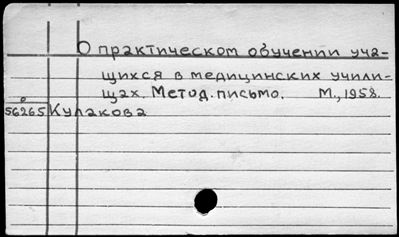 О практическом обучении уча-
щихся в медицинских учили-
щах. Метод. письмо. М., 1958.
56265 Кулакова